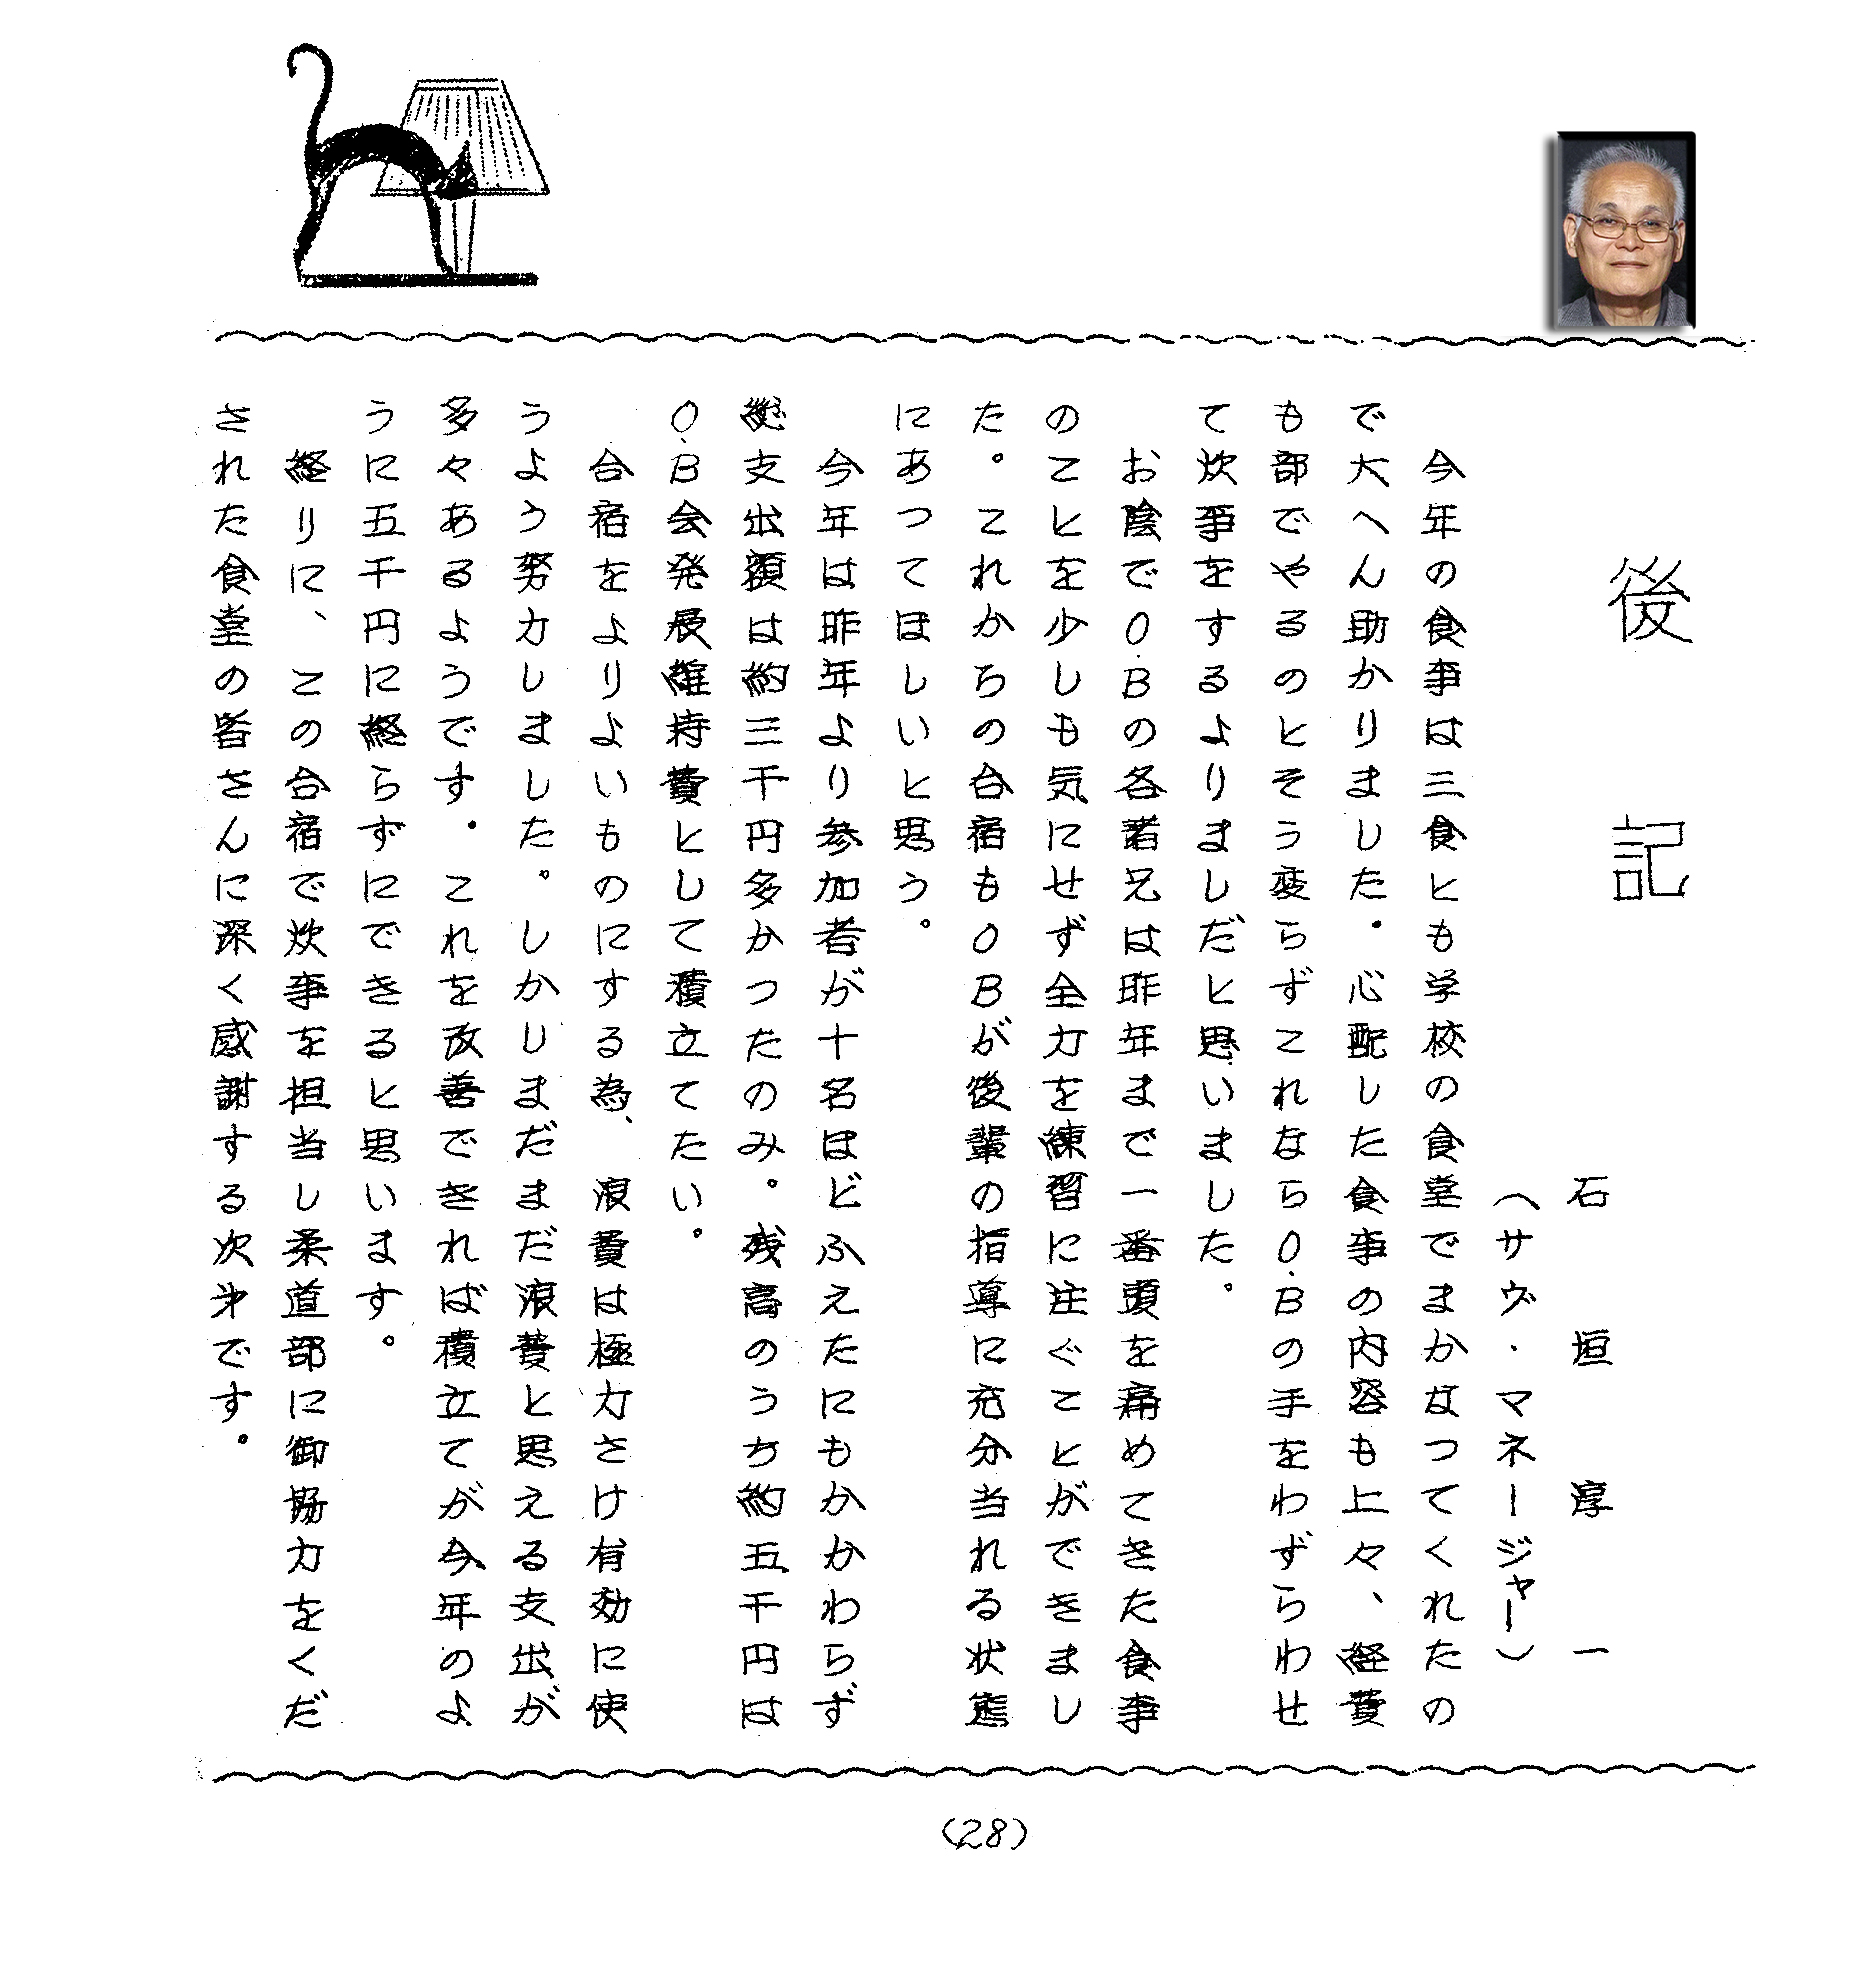 後記
石垣淳一
(サヴ・マネージャー)
今年の食事は三食とも学校の食堂でまかなつてくれたの
で大へん助かりました。心配した食事の内容も上々、経費
も部でやるのとそう変らずこれならO.Bの手をわずらわせ
て炊事をするよりましだと思いました。
お陰でO.Bの各諸兄は昨年まで一番頭を痛めてきた食事
のことを少しも気にせず全力を練習に注ぐことができまし
た。これからの合宿もOBが後輩の指導に充分当れる状態
にあつてほしいと思う。
今年は昨年より参加者が十名ほどふえたにもかかわらず
総支出額は約三千円多かつたのみ。残高のうち約五千円は
O.B会発展維持費として積立てたい。
合宿をよりよいものにする為、浪費は極力さけ有効に使
うよう努力しました。しかしまだまだ浪費と思える支出が
多々あるようです。これを改善できれば積立てが今年のよ
うに五千円に終らずにできると思います。
終りに、この合宿で炊事を担当し柔道部に御協力をくだ
された食堂の皆さんに深く感謝する次第です。
(28)